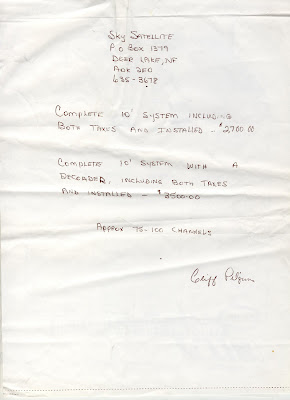 Sky Satellite
P O Box 1379
Deer Lake, NF
A0K 2E0
635-3678
Complete 10' System Including
Both Taxes and Installed - $2700.00
Complete 10' System with a
Decorder, Including Both Taxes
and Installed - $3500.00
Approx 75-100 Channels
Cliff Pilgrim